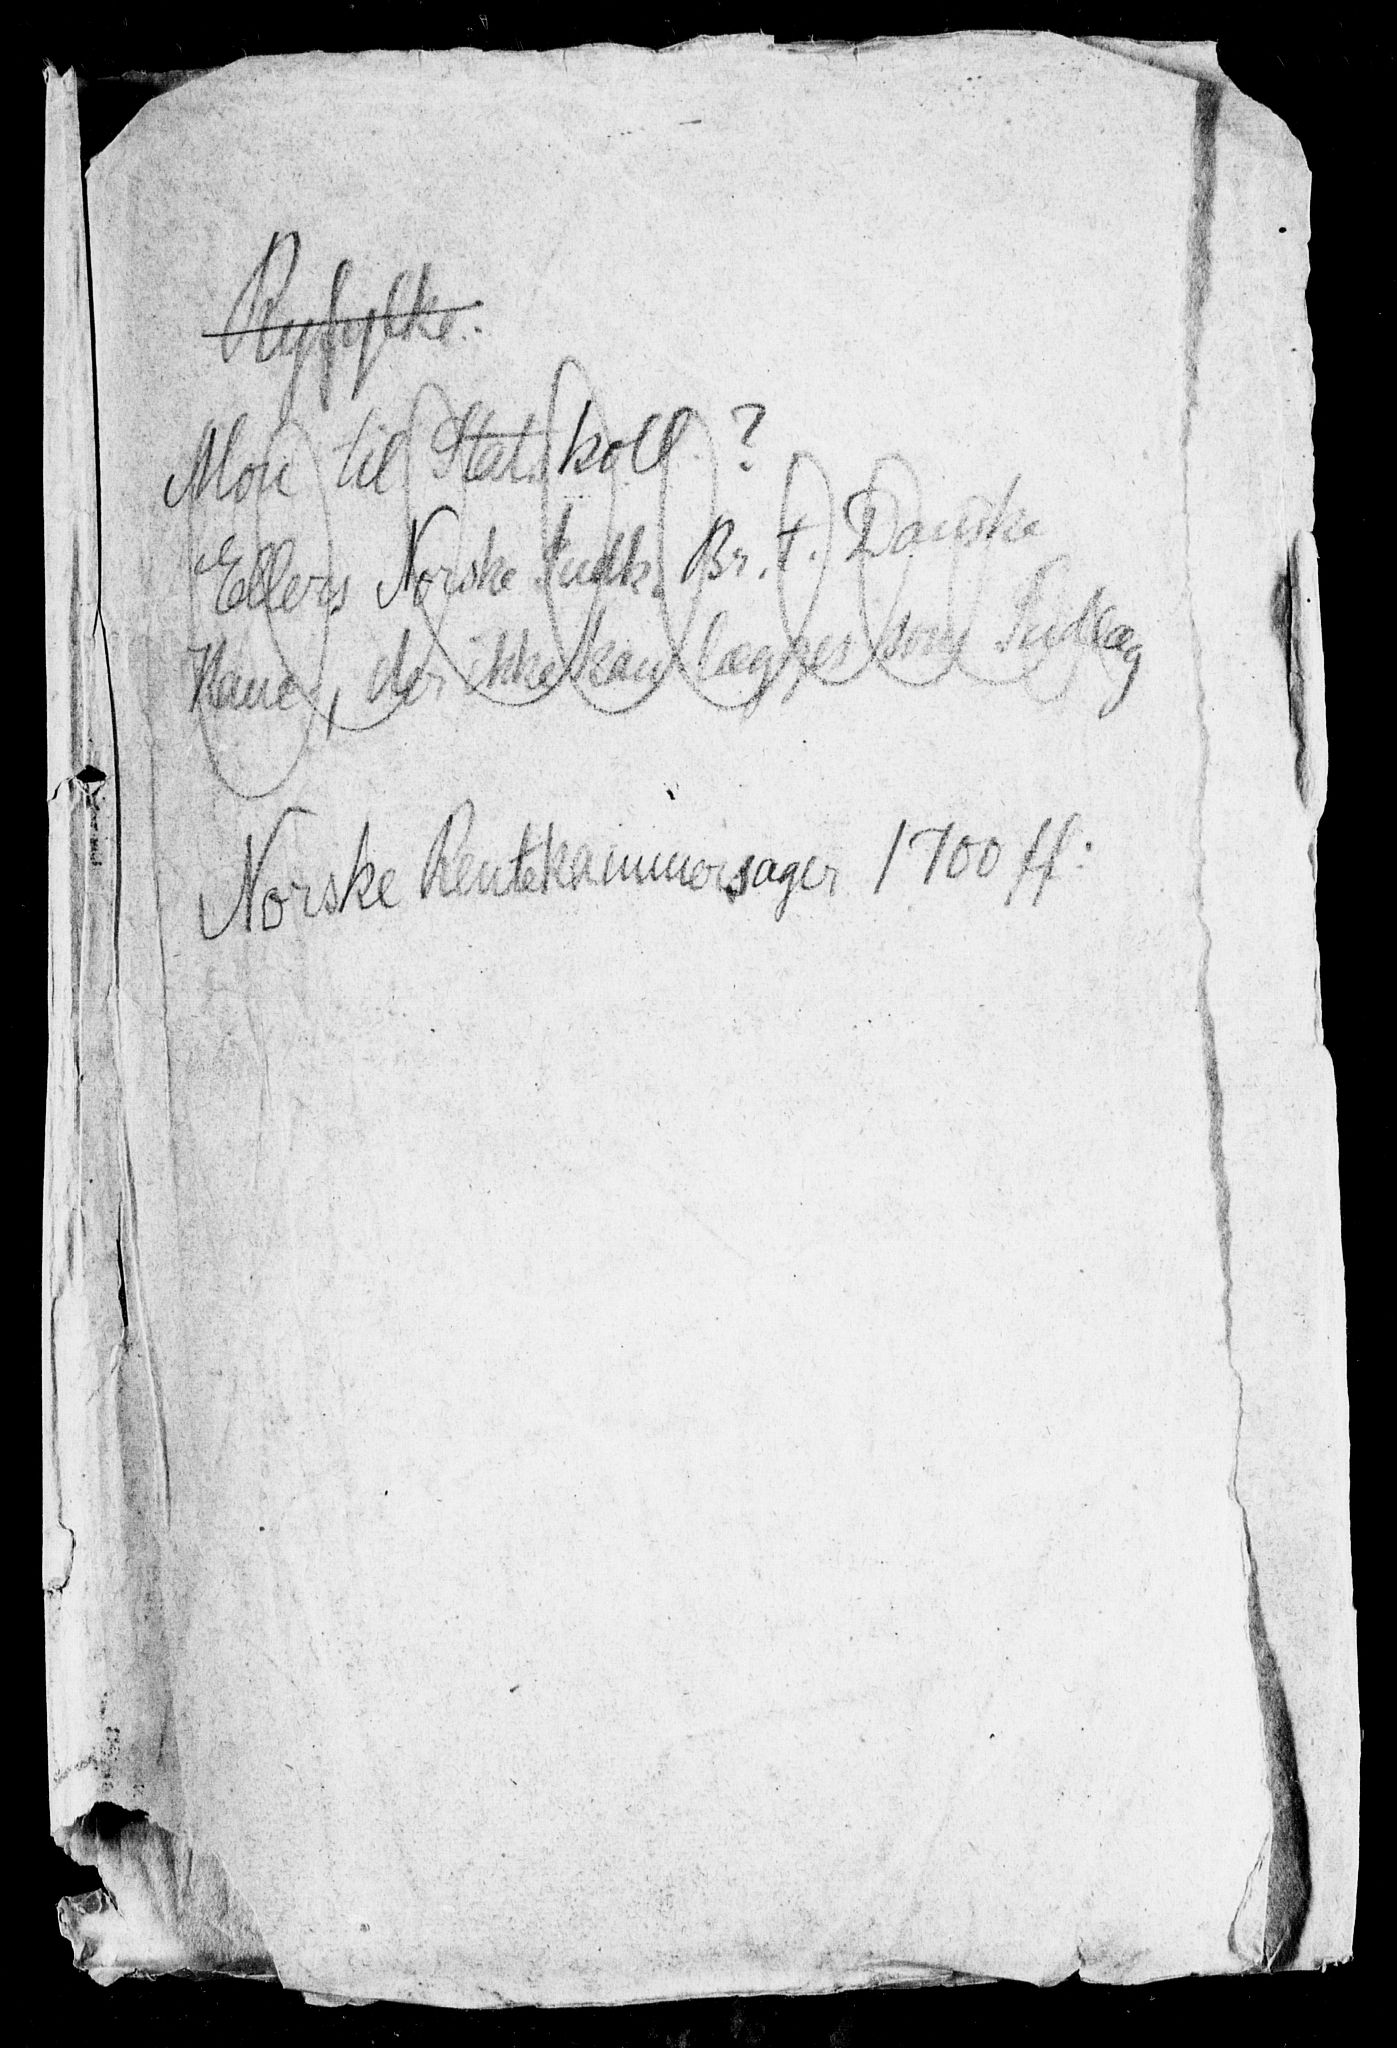 Ryfylke.
Mon til Stat. koll. ?
Ellers Norske Indk. Br. t. Danske
Kanc., der ikke kan lægges som Indlæg
Norske Rentekammersager 1700 ff: